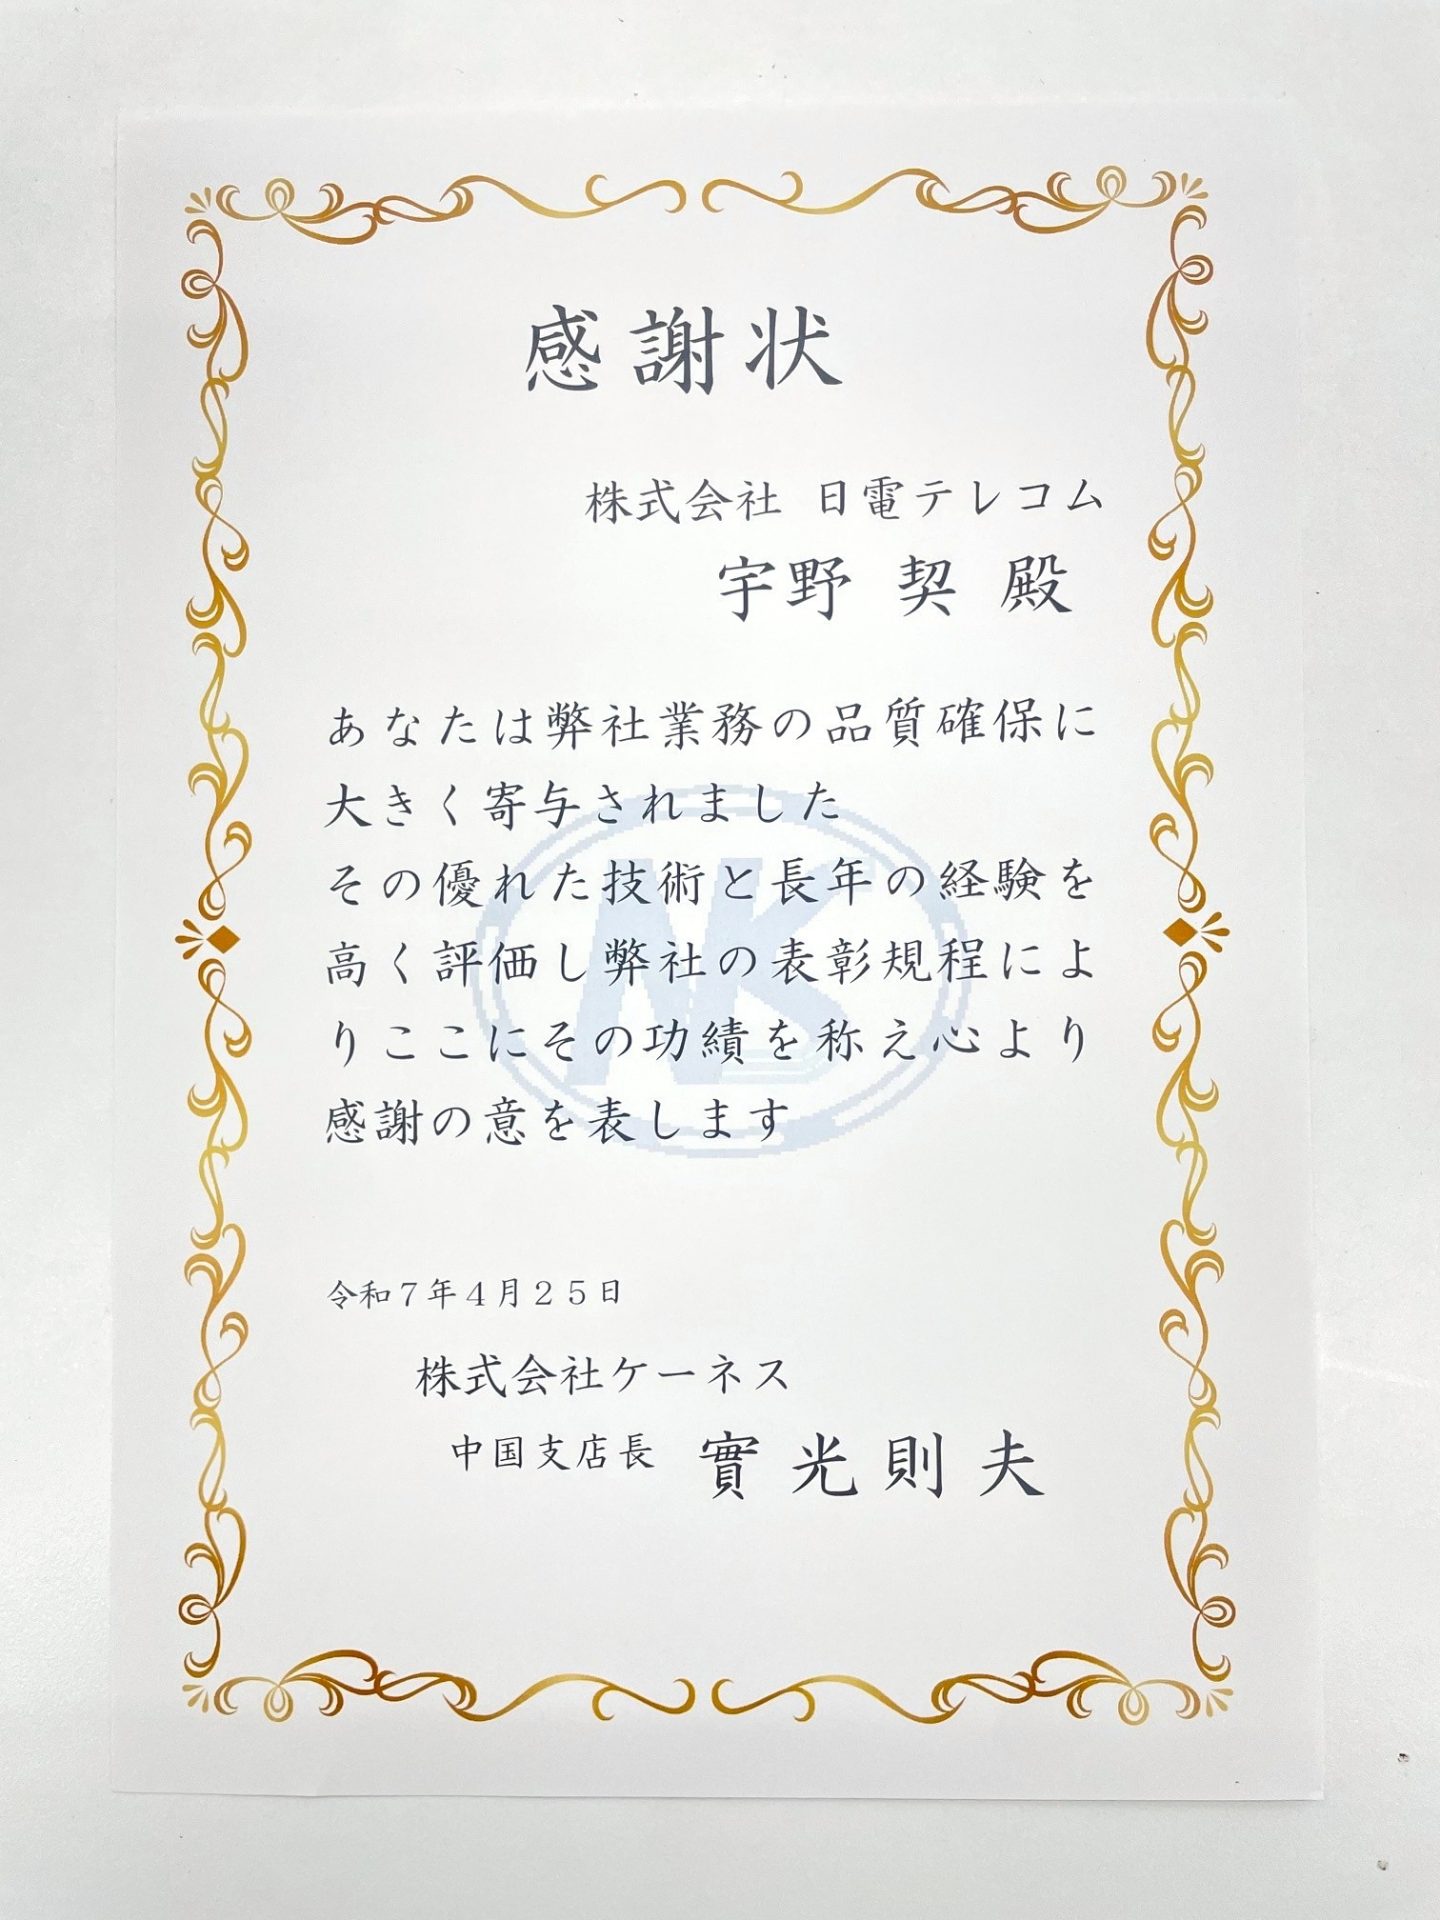 感謝状
株式会社 日電テレコム
宇野 契 殿
あなたは弊社業務の品質確保に
大きく寄与されました
その優れた技術と長年の経験を
高く評価し弊社の表彰規程によ
りここにその功績を称え心より
感謝の意を表します
令和７年４月２５日
株式会社ケーネス
中国支店長 實光則夫